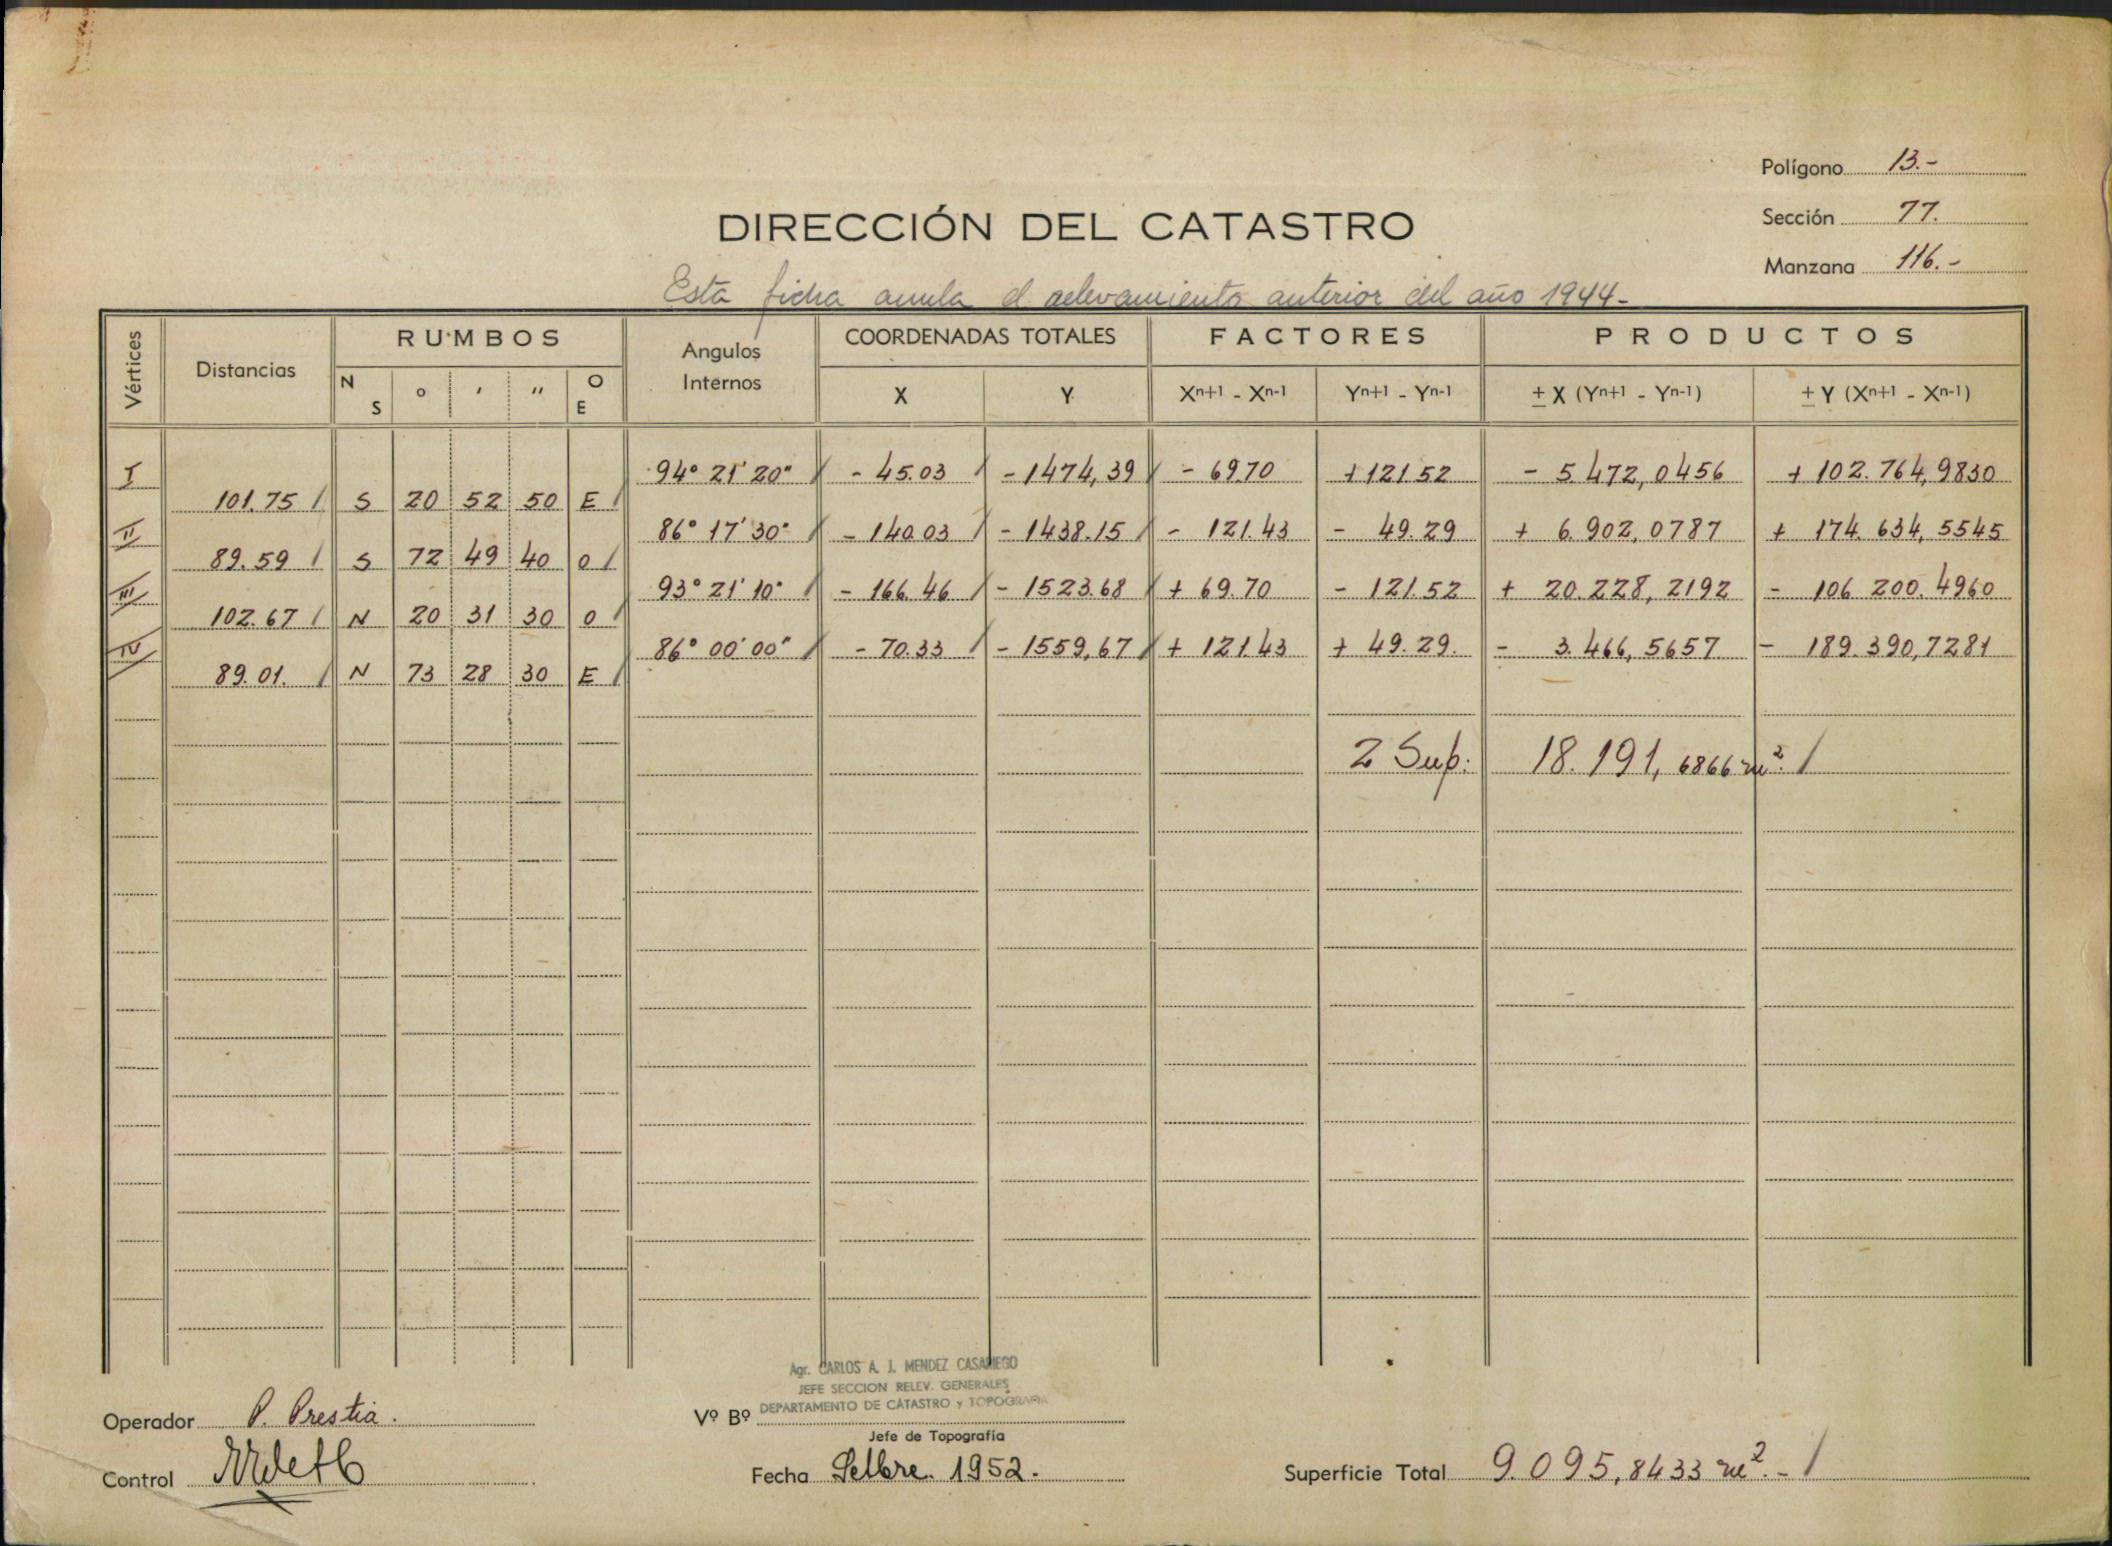 Polígono 13.-
Sección 77.
Manzana 116.-
DIRECCIÓN DEL CATASTRO
Esta ficha anula el relevamiento anterior del año 1944-
Vértices Distancias RUMBOS Angulos Internos COORDENADAS TOTALES FACTORES PRODUCTOS
N S ° ' " O E X Y Xn+1 - Xn-1 Yn+1 - Yn-1 ± X (Yn+1 - Yn-1) ± Y (Xn+1 - Xn-1)
I 94° 21' 20" - 45.03 - 1474,39 - 69.70 + 121.52 - 5.472,0456 + 102.764,9830
101.75 S 20 52 50 E
II 86° 17' 30" - 140.03 - 1438.15 - 121.43 - 49.29 + 6.902,0787 + 174.634,5545
89.59 S 72 49 40 O
III 93° 21' 10" - 166.46 - 1523.68 + 69.70 - 121.52 + 20.228,2192 - 106 200.4960
102.67 N 20 31 30 O
IV 86° 00' 00" - 70.33 - 1559,67 + 121.43 + 49.29. - 3.466,5657 - 189.390,7281
89.01. N 73 28 30 E
2 Sup: 18.191,6866 m².
Agr. CARLOS A. J. MENDEZ CASARIEGO
JEFE SECCION RELEV. GENERALES
DEPARTAMENTO DE CATASTRO y TOPOGRAFIA
Operador P. Prestia.
Vº Bº
Jefe de Topografía
Control
Fecha Setbre. 1952.
Superficie Total 9.095,8433 m².-